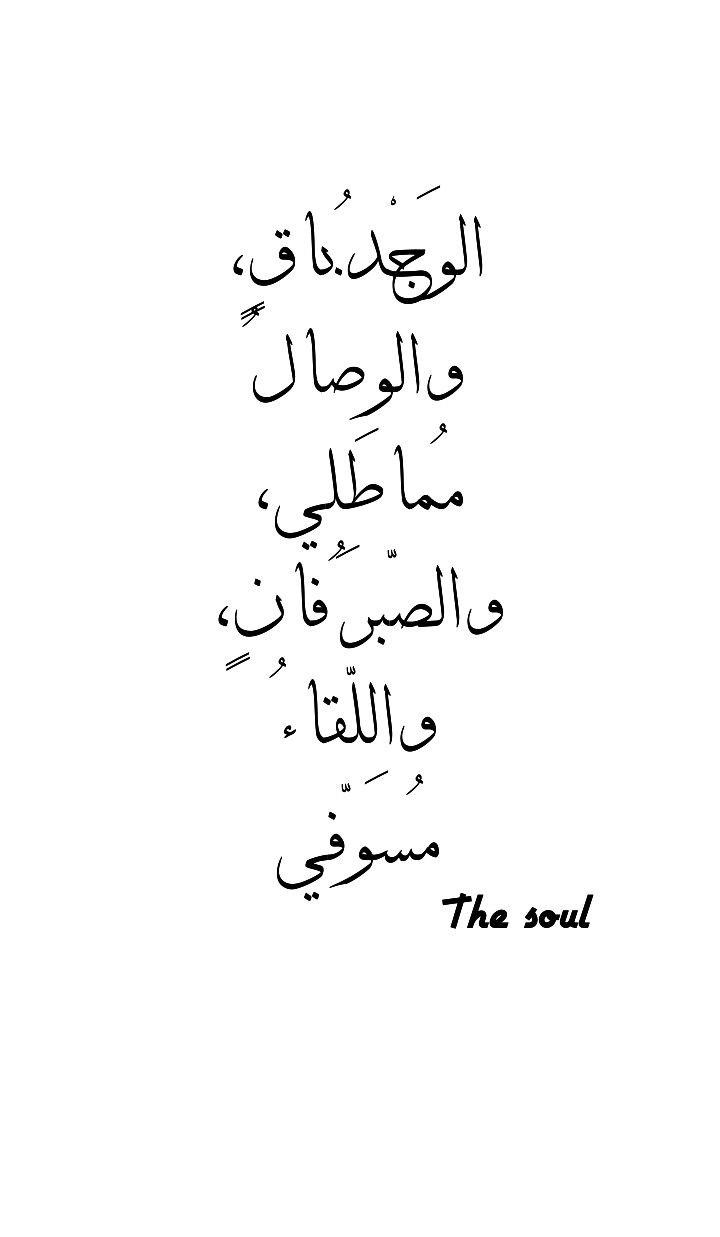 الوَجْدُ باقٍ،
والوصالُ
مُماطَلي،
والصّبرُ فَانٍ،
واللّقاءُ
مُسَوّفي
The soul